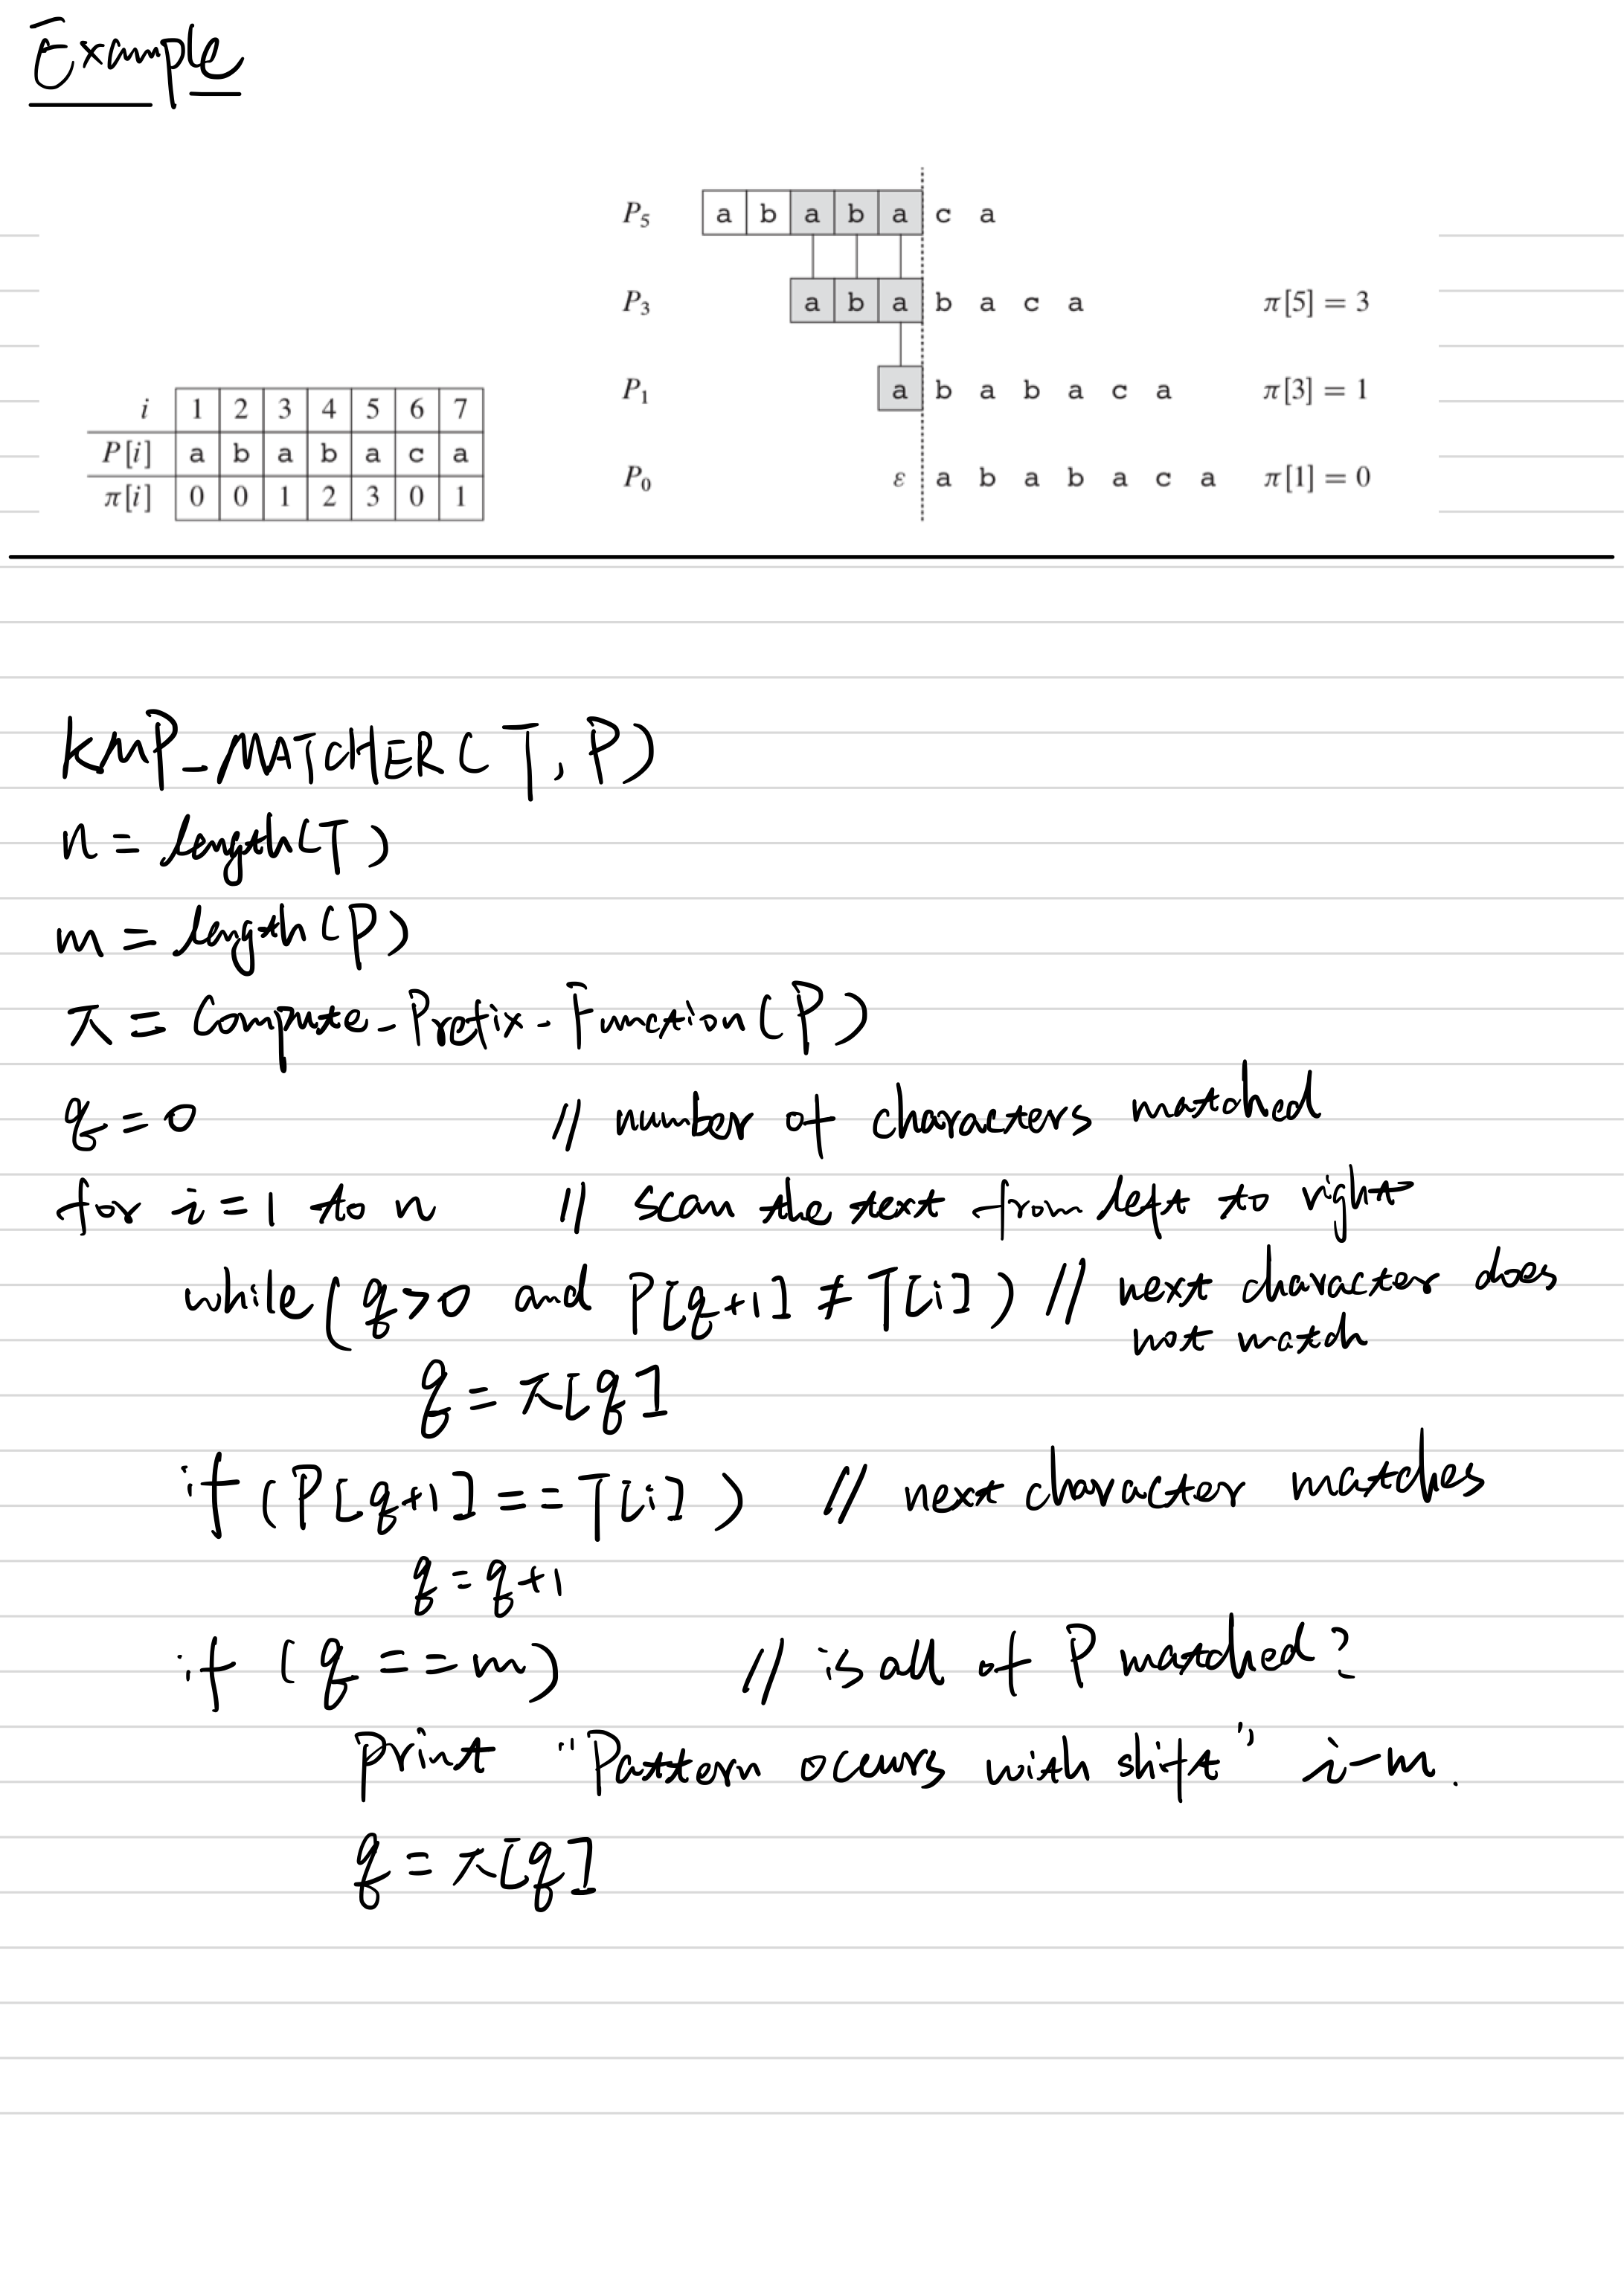 Example
P5 a b a b a c a
P3 a b a b a c a π[5] = 3
P1 a b a b a c a π[3] = 1
P0 ε a b a b a c a π[1] = 0
i 1 2 3 4 5 6 7
P[i] a b a b a c a
π[i] 0 0 1 2 3 0 1
KMP-MATCHER(T, P)
n = length(T)
m = length(P)
π = Compute-Prefix-Function(P)
q = 0 // number of characters matched
for i = 1 to n // scan the text from left to right
while(q>0 and P[q+1] ≠ T[i]) // next character does
not match
q = π[q]
if (P[q+1] == T[i]) // next character matches
q = q+1
if (q == m) // is all of P matched?
print "Pattern occurs with shift" i-m.
q = π[q]